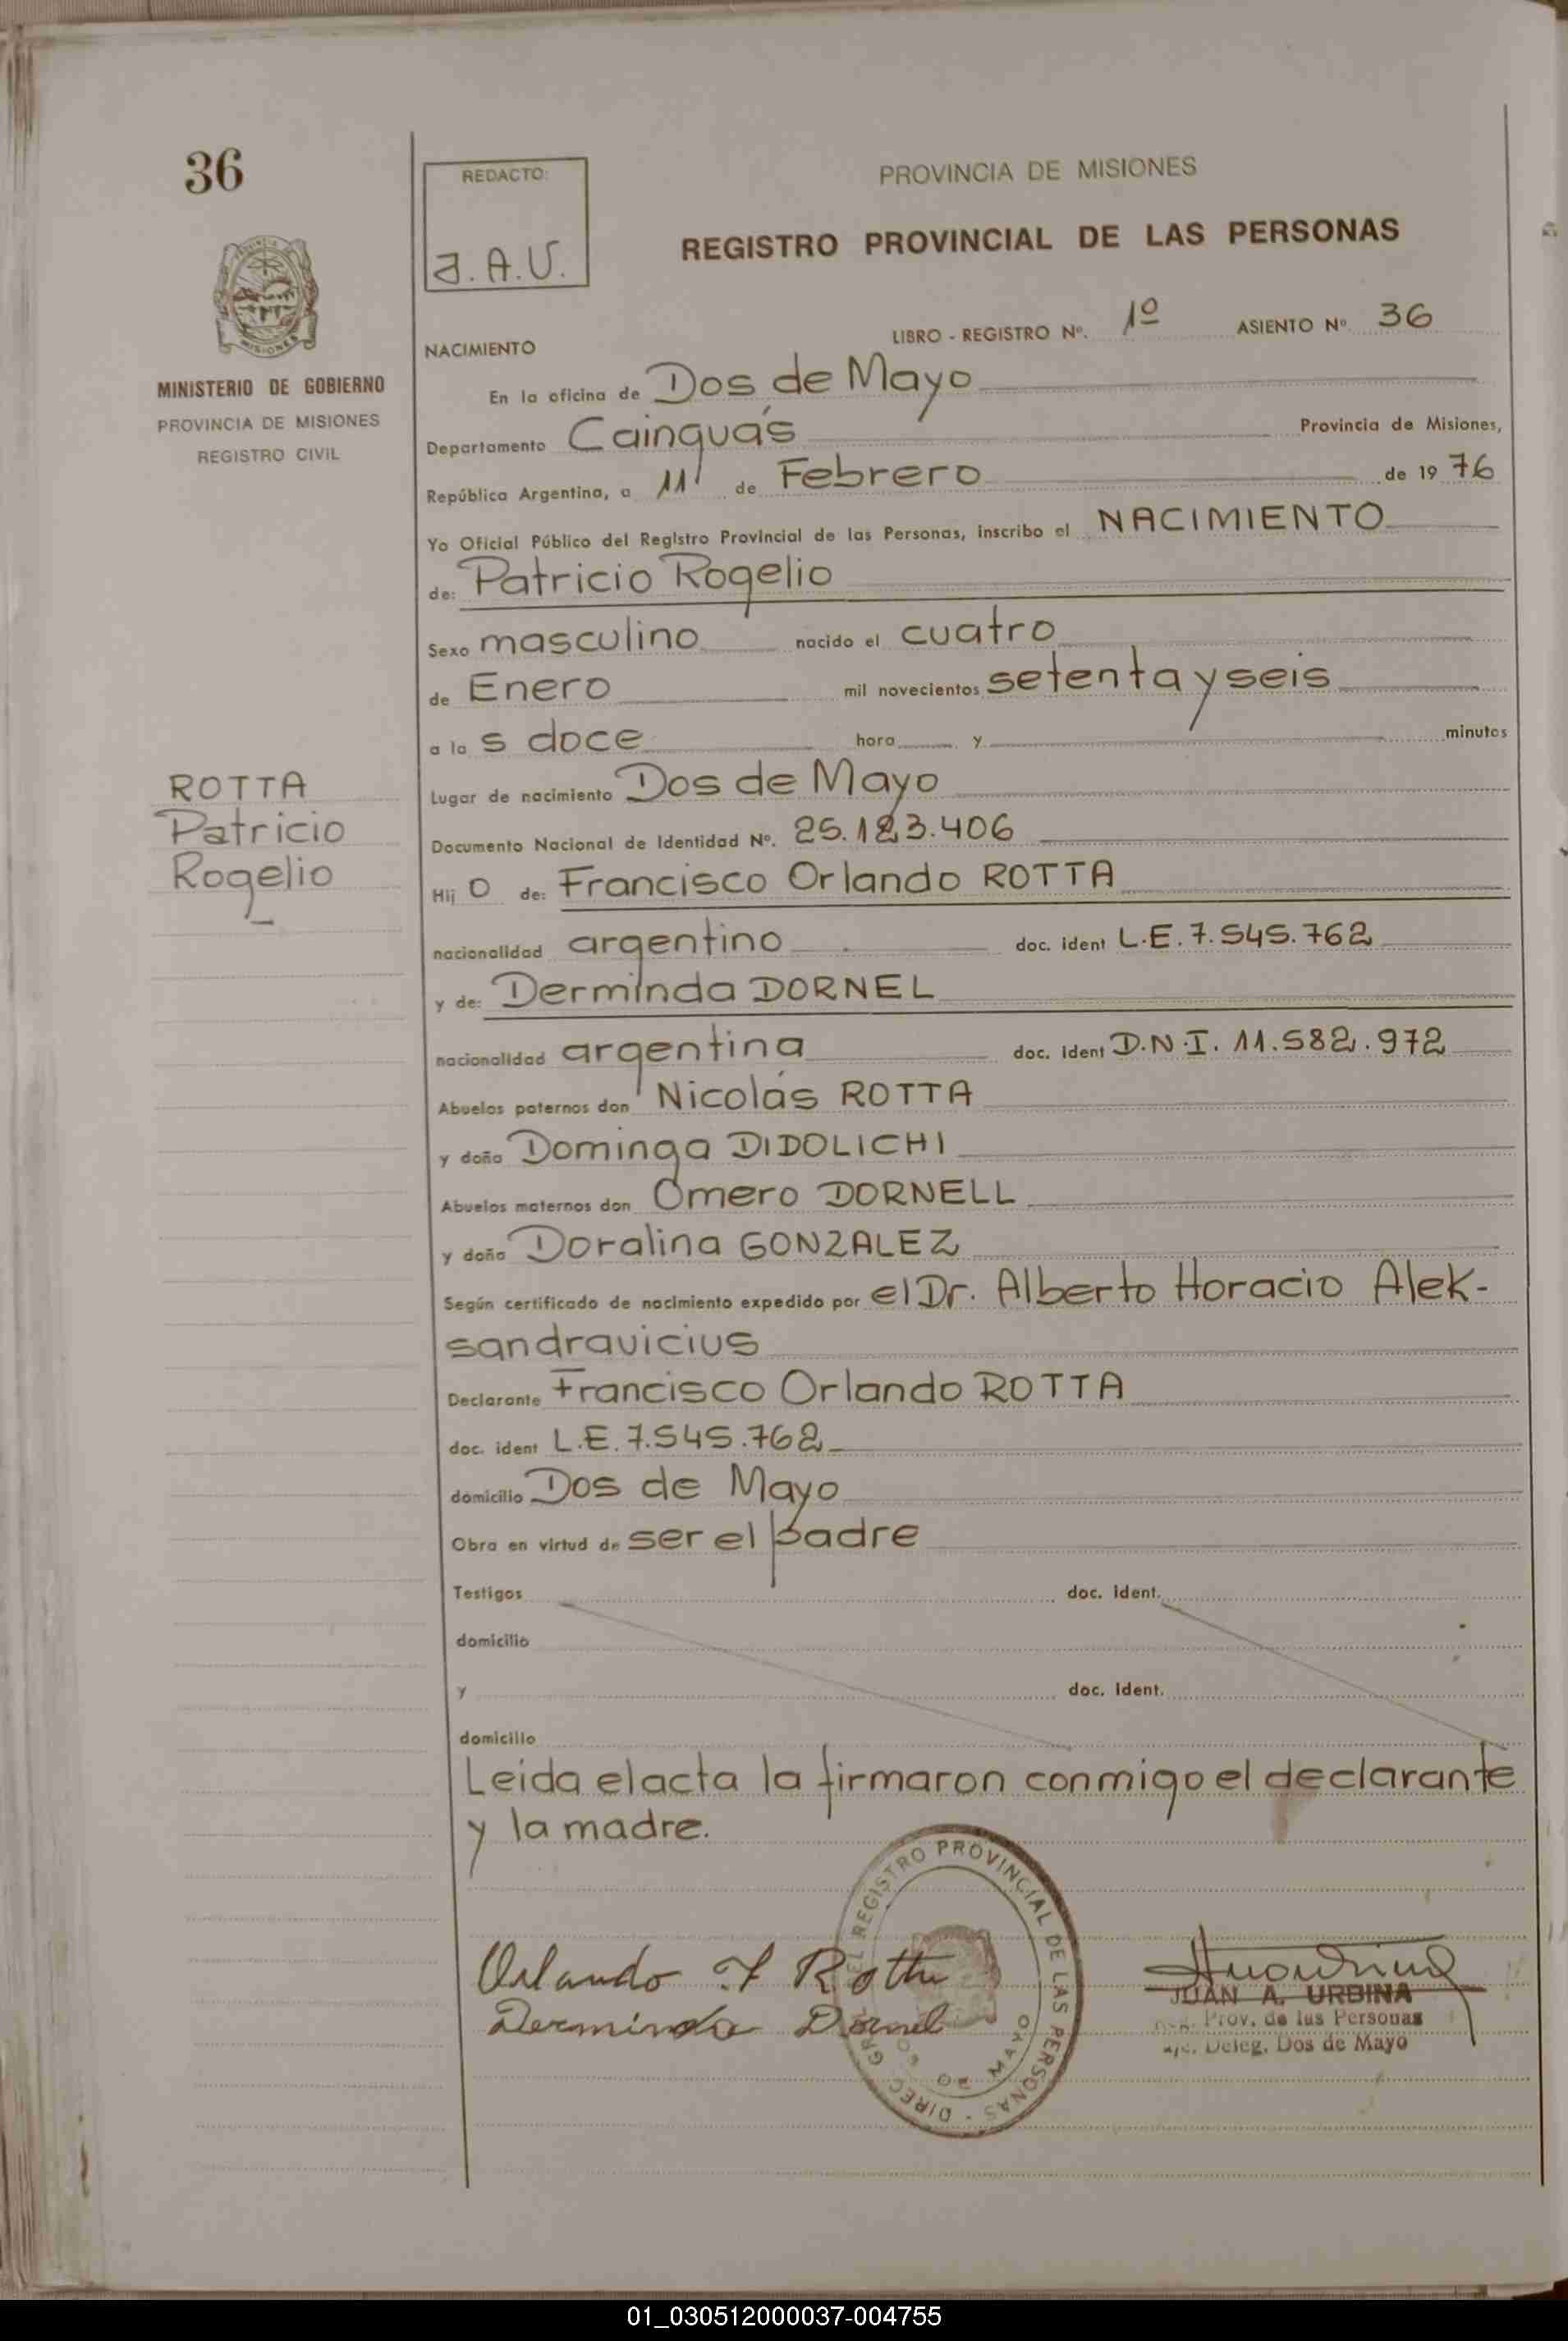 36
REDACTO:
J.A.U.
PROVINCIA DE MISIONES
REGISTRO PROVINCIAL DE LAS PERSONAS
MISIONES
MINISTERIO DE GOBIERNO
PROVINCIA DE MISIONES
REGISTRO CIVIL
NACIMIENTO
LIBRO - REGISTRO Nº. 1º ASIENTO Nº 36
En la oficina de Dos de Mayo
Departamento Cainguás Provincia de Misiones,
República Argentina, a 11 de Febrero de 1976
Yo Oficial Público del Registro Provincial de las Personas, inscribo el NACIMIENTO
de: Patricio Rogelio
Sexo masculino nacido el cuatro
de Enero mil novecientos setenta y seis
a las doce hora y minutos
ROTTA
Patricio
Rogelio
Lugar de nacimiento Dos de Mayo
Documento Nacional de Identidad Nº. 25.123.406
Hijo de: Francisco Orlando ROTTA
nacionalidad argentino doc. ident L.E. 7.545.762
y de: Derminda DORNEL
nacionalidad argentina doc. ident D.N.I. 11.582.972
Abuelos paternos don Nicolás ROTTA
y doña Dominga DIDOLICHI
Abuelos maternos don Omero DORNELL
y doña Doralina GONZALEZ
Según certificado de nacimiento expedido por el Dr. Alberto Horacio Alek-
sandravicius
Declarante Francisco Orlando ROTTA
doc. ident L.E. 7.545.762
domicilio Dos de Mayo
Obra en virtud de ser el padre
Testigos doc. ident.
domicilio
y doc. ident.
domicilio
Leida el acta la firmaron conmigo el declarante
y la madre.
DIREC. GRAL. DEL REGISTRO PROVINCIAL DE LAS PERSONAS -
DOS DE MAYO
Orlando F Rotta
Derminda Dornel
JUAN A. URBINA
Prov. de las Personas
Deleg. Dos de Mayo
01_030512000037-004755